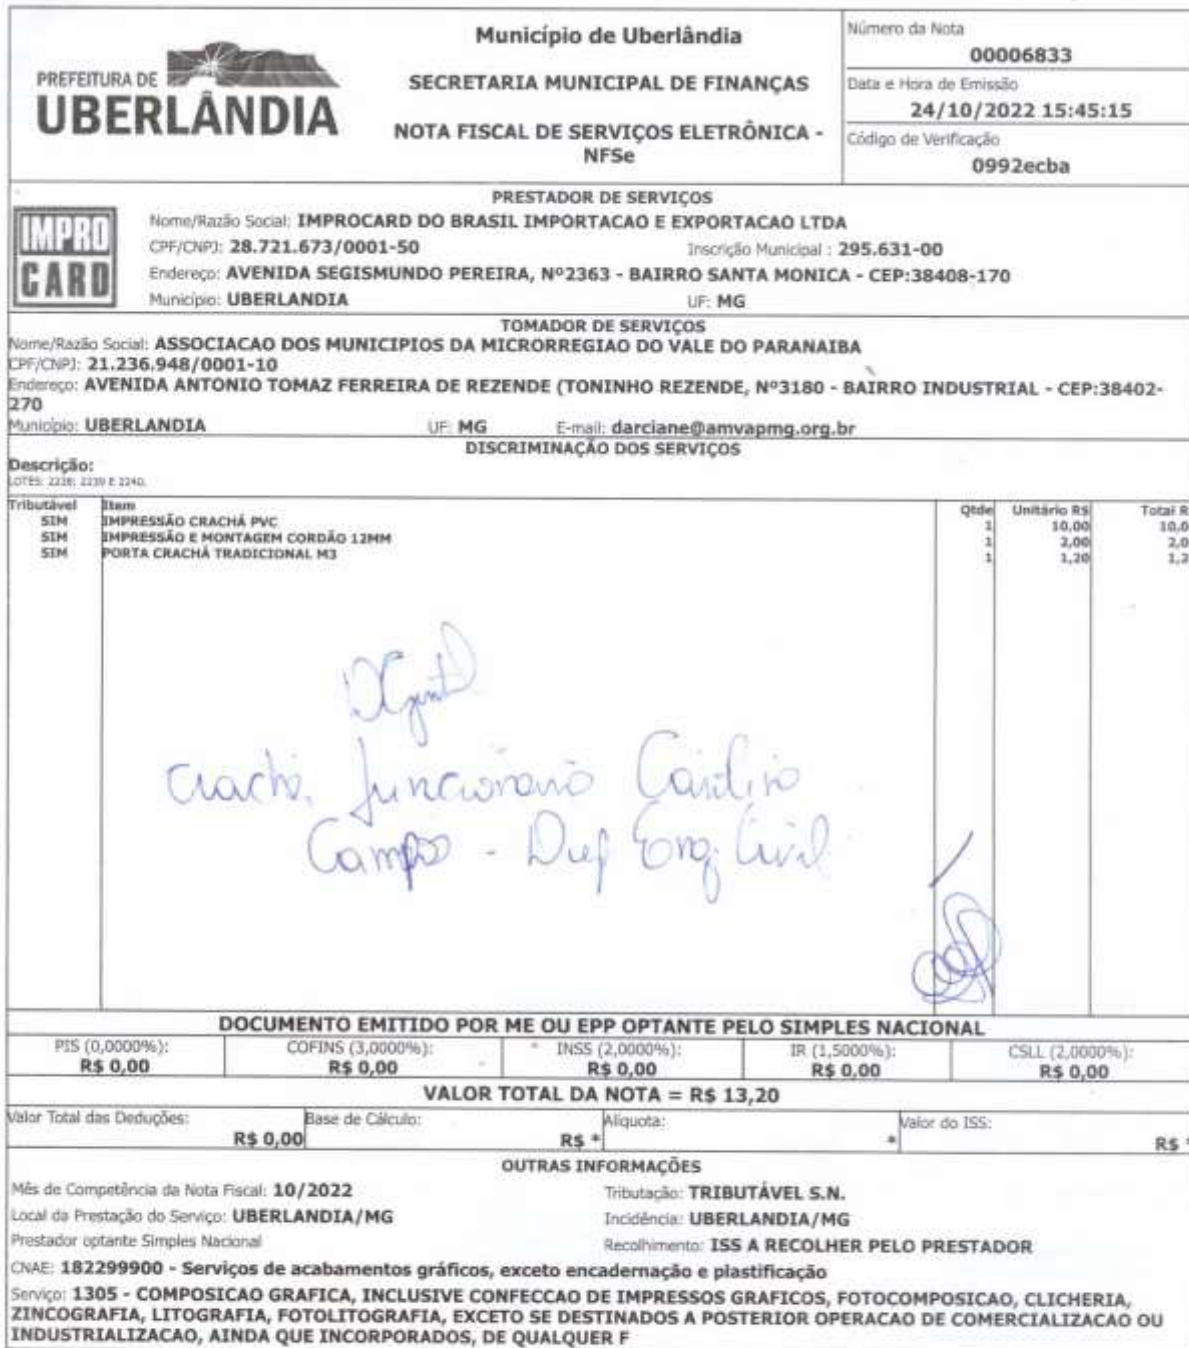 PREFEITURA DE
UBERLÂNDIA
Município de Uberlândia
SECRETARIA MUNICIPAL DE FINANÇAS
NOTA FISCAL DE SERVIÇOS ELETRÔNICA -
NFSe
Número da Nota
00006833
Data e Hora de Emissão
24/10/2022 15:45:15
Código de Verificação
0992ecba
PRESTADOR DE SERVIÇOS
IMPRO
CARD
Nome/Razão Social: IMPROCARD DO BRASIL IMPORTACAO E EXPORTACAO LTDA
CPF/CNPJ: 28.721.673/0001-50 Inscrição Municipal : 295.631-00
Endereço: AVENIDA SEGISMUNDO PEREIRA, Nº2363 - BAIRRO SANTA MONICA - CEP:38408-170
Município: UBERLANDIA UF: MG
TOMADOR DE SERVIÇOS
Nome/Razão Social: ASSOCIACAO DOS MUNICIPIOS DA MICRORREGIAO DO VALE DO PARANAIBA
CPF/CNPJ: 21.236.948/0001-10
Endereço: AVENIDA ANTONIO TOMAZ FERREIRA DE REZENDE (TONINHO REZENDE, Nº3180 - BAIRRO INDUSTRIAL - CEP:38402-
270
Município: UBERLANDIA UF: MG E-mail: darciane@amvapmg.org.br
DISCRIMINAÇÃO DOS SERVIÇOS
Descrição:
LOTES: 2238; 2239 E 2240.
Tributável Item Qtde Unitário R$ Total R
SIM IMPRESSÃO CRACHÁ PVC 1 10,00 10,0
SIM IMPRESSÃO E MONTAGEM CORDÃO 12MM 1 2,00 2,0
SIM PORTA CRACHÁ TRADICIONAL M3 1 1,20 1,2
Crachá funcionario
Campos - Dep Eng. Civil
DOCUMENTO EMITIDO POR ME OU EPP OPTANTE PELO SIMPLES NACIONAL
PIS (0,0000%): COFINS (3,0000%): INSS (2,0000%): IR (1,5000%): CSLL (2,0000%):
R$ 0,00 R$ 0,00 R$ 0,00 R$ 0,00 R$ 0,00
VALOR TOTAL DA NOTA = R$ 13,20
Valor Total das Deduções: Base de Cálculo: Alíquota: Valor do ISS:
R$ 0,00 R$ * * R$ *
OUTRAS INFORMAÇÕES
Mês de Competência da Nota Fiscal: 10/2022 Tributação: TRIBUTÁVEL S.N.
Local da Prestação do Serviço: UBERLANDIA/MG Incidência: UBERLANDIA/MG
Prestador optante Simples Nacional Recolhimento: ISS A RECOLHER PELO PRESTADOR
CNAE: 182299900 - Serviços de acabamentos gráficos, exceto encadernação e plastificação
Serviço: 1305 - COMPOSICAO GRAFICA, INCLUSIVE CONFECCAO DE IMPRESSOS GRAFICOS, FOTOCOMPOSICAO, CLICHERIA,
ZINCOGRAFIA, LITOGRAFIA, FOTOLITOGRAFIA, EXCETO SE DESTINADOS A POSTERIOR OPERACAO DE COMERCIALIZACAO OU
INDUSTRIALIZACAO, AINDA QUE INCORPORADOS, DE QUALQUER F